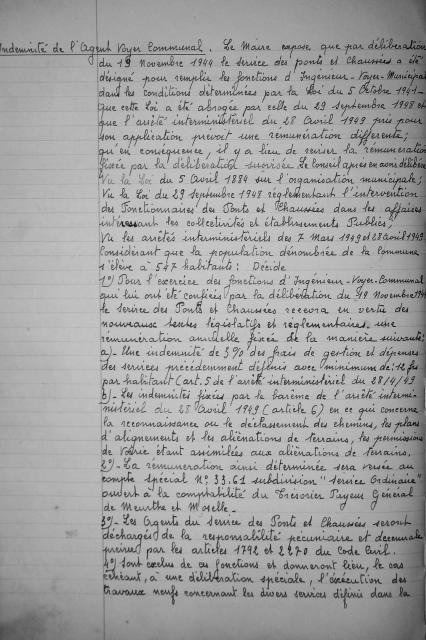 Indemnité de l'Agent Voyer Communal. Le Maire expose que par délibération
du 19 Novembre 1944 le service des ponts et Chaussées a été
désigné pour remplir les fonctions d'Ingénieur-Voyer-Municipal
dans les conditions déterminées par la Loi du 5 Octobre 1941-
que cette Loi a été abrogée par celle du 29 Septembre 1948 et
que l'arrêté interministériel du 28 Avril 1949 pris pour
son application prévoit une rémunération différente;
qu'en conséquence, il y a lieu de reviser la rémunération
fixée par la délibération susvisée. Le Conseil après en avoir délibéré
Vu la Loi du 5 Avril 1884 sur l'organisation municipale;
Vu la Loi du 29 Septembre 1948 réglementant l'intervention
des Fonctionnaires des Ponts et Chaussées dans les affaires
intéressant les collectivités et établissements Publics;
Vu les arrêtés interministériels des 7 Mars 1949 et 28 Avril 1949-
Considérant que la population dénombrée de la Commune
s'élève à 547 habitants: Décide
1°) Pour l'exercice des fonctions d'Ingénieur-Voyer-Communal
qui lui ont été confiées par la délibération du 19 Novembre 1944
le service des Ponts et Chaussées recevra en vertu des
nouveaux textes législatifs et réglementaires, une
rémunération annuelle fixée de la manière suivante:
a)- Une indemnité de 3% des frais de gestion et dépenses
des services précédemment définis avec minimum de: 12 frs
par habitant (art. 5 de l'arrêté interministériel du 28/4/49
b)- Les indemnités fixées par le barème de l'arrêté intermi-
nistériel du 28 Avril 1949 (article 6) en ce qui concerne
la reconnaissance ou le déclassement des chemins, les plans
d'alignements et les aliénations de terrains, les permissions
de Voirie étant assimilées aux aliénations de terrains.
2°)- La rémunération ainsi déterminée sera versée au
compte spécial N° 33.61 subdivision "Service Ordinaire"
ouvert à la comptabilité du Trésorier Payeur Général
de Meurthe et Moselle-
3°)- Les Agents du Service des Ponts et Chaussées seront
déchargés de la responsabilité pécuniaire et décennale
prévues par les articles 1792 et 2270 du Code Civil.
4°) Sont exclus de ces fonctions et donneront lieu, le cas
échéant, à une délibération spéciale, l'exécution des
travaux neufs concernant les divers services définis dans la